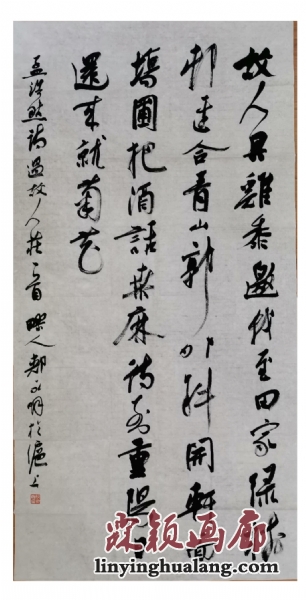 故人具雞黍邀我至田家綠樹
邨邊合青山郭外斜開軒面
場圃把酒話桑麻待到重陽日
還來就菊花
孟浩然詩過故人莊一首 人郝 於滬上
霖颖画廊
linyinghualang.com